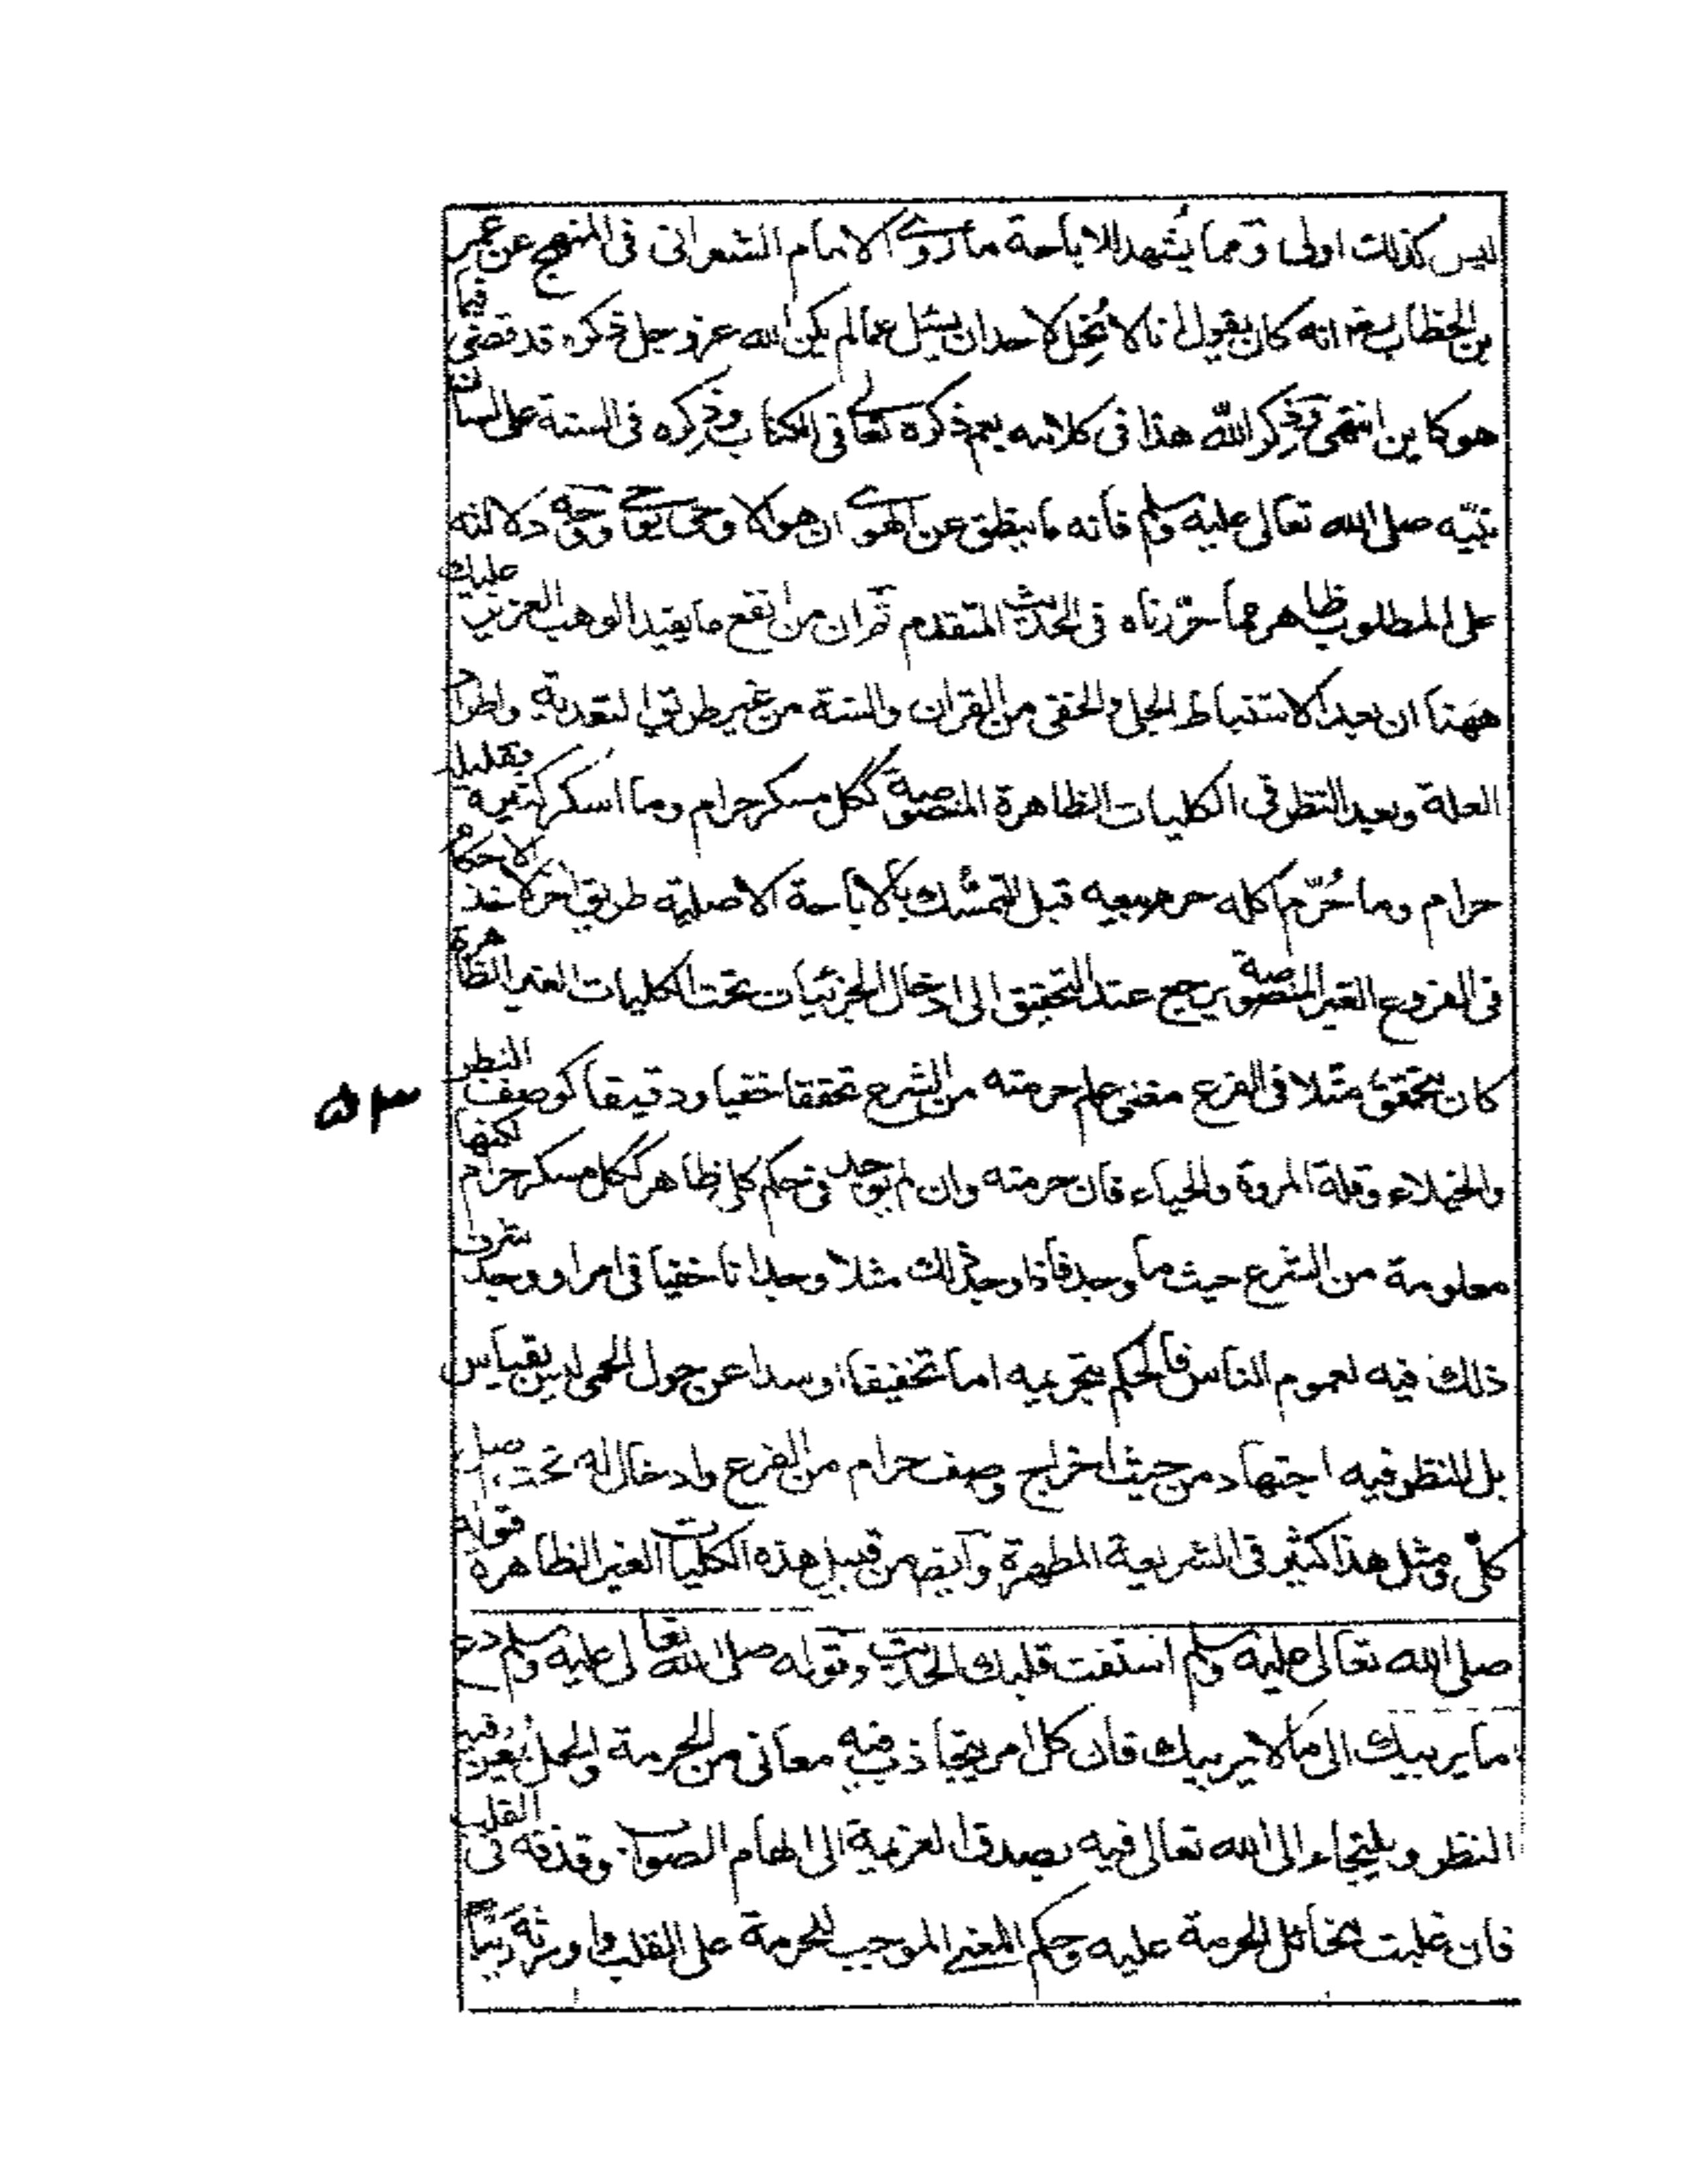 ليس كذلك اولى ومما يشهد للاباحة ما روى الامام الشعرانى فى المنهج عن عمر
بن الخطاب رضـ انه كان يقول انا لا نُحِل لاحد ان يسئل عما لم يكن الله عز وجل قد قضى فيما
هو كاين انتهى وذِكر الله هذا فى كلامه يعم ذكره تعالى فى الكتاب وذِكره فى السنة على لسان
نبيّه صلى الله تعالى عليه وسلم فانه ما ينطق عن الهوى ان هو الا وحى يوحى ووجه دلالته
على المطلوب ظاهر مما حرّرناه فى الحديث المتقدم وان من انفع ما يفيد الوهب العزيز عليك
ههنا ان بعد الاستنباط الجلى والخفى من القران والسنة من غير طريق التعدية واطراد
العلة وبعد النظر فى الكليات الظاهرة المنصوصة ككل مسكر حرام وما اسكر كثيره فقليله
حرام وما حُرّم اكله حرم بيعه قبل التمسّك بالاباحة الاصلية طريق اخر لاخذ الاحكام
فى الفروع الغير المنصوصة يرجع عند التحقيق الى ادخال الجزئيات تحت الكليات الغير الظاهرة
كان يتحقق مثلا فى الفرع معنى علم حرمته من الشرع تحققا خفيا ودقيقا كوصف النظر
والخيلاء وقلة المروة والحياء فان حرمته وان لم توجد فى حكم كلى ظاهر ككل مسكر حرام لكنها
معلومة من الشرع حيث ما وجد فاذا وجد ذلك مثلا وجدانا خفيا فى امر او وجد
ذلك فيه لعموم الناس فالحكم بتحريمه اما تحقيقا او سدا عن حول الحمى ليس بقياس
بل للنظر فيه اجتهاد من حيث اخراج وصف حرام من الفرع وادخال له تحت اصل
كلّى ومثل هذا كثير فى الشريعة المطهرة وايضا من قبيل هذه الكليات الغير الظاهرة قوله
صلى الله تعالى عليه وسلم استفت قلبك الحديث وقوله صلى الله تعالى عليه وسلم دع
ما يريبك الى ما لا يريبك فان كل امر يتجاذب فيه معانى من الحرمة والحل فيه
النظر ويلتجاء الى الله تعالى فيه بصدق العزيمة الى الهام الصواب وقذفه فى القلب
فان غلبت الحرمة عليه وحكم المعنى الموجب للحرمة على القلب واورثه
۵۳